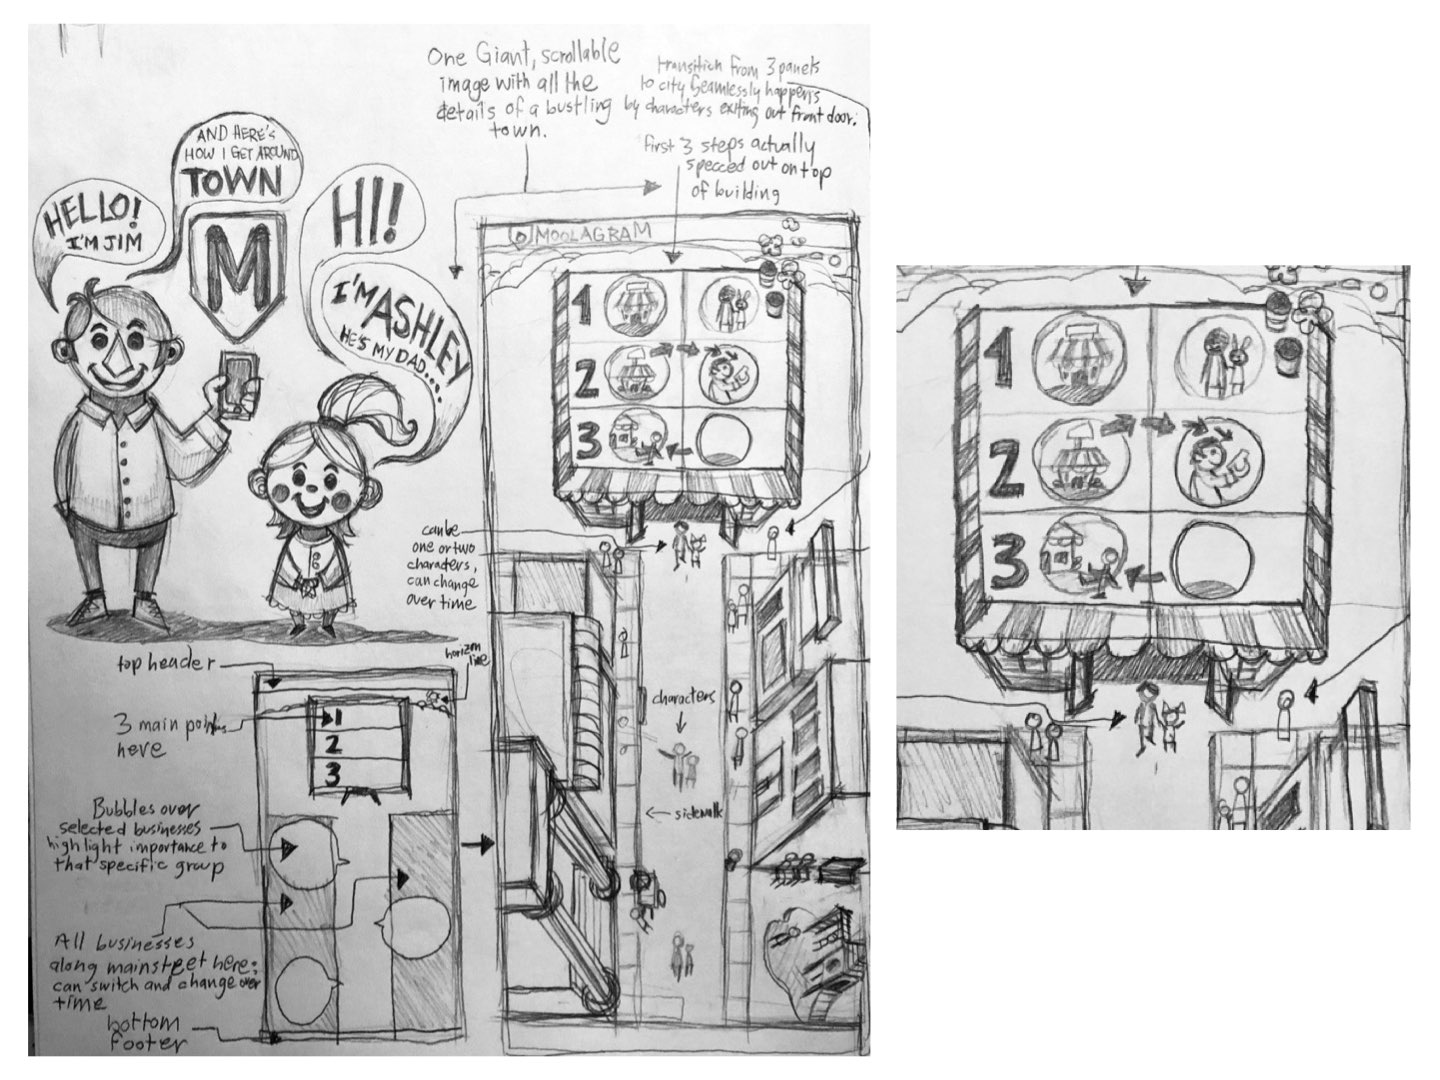 One Giant, scrollable
image with all the
details of a bustling
town.
transition from 3 panels
to city seamlessly happens
by characters exiting out front door.
first 3 steps actually
specced out on top
of building
AND HERE'S
HOW I GET AROUND
TOWN
HELLO!
I'M JIM
M
HI!
I'M ASHLEY
HE'S MY DAD...
MOOLAGRAM
1
2
3
can be
one or two
characters,
can change
over time
top header
horizon
line
3 main points
here
1
2
3
Bubbles over
selected businesses
highlight importance to
that specific group
All businesses
along mainstreet here;
can switch and change over
time
bottom
footer
characters
sidewalk
1
2
3